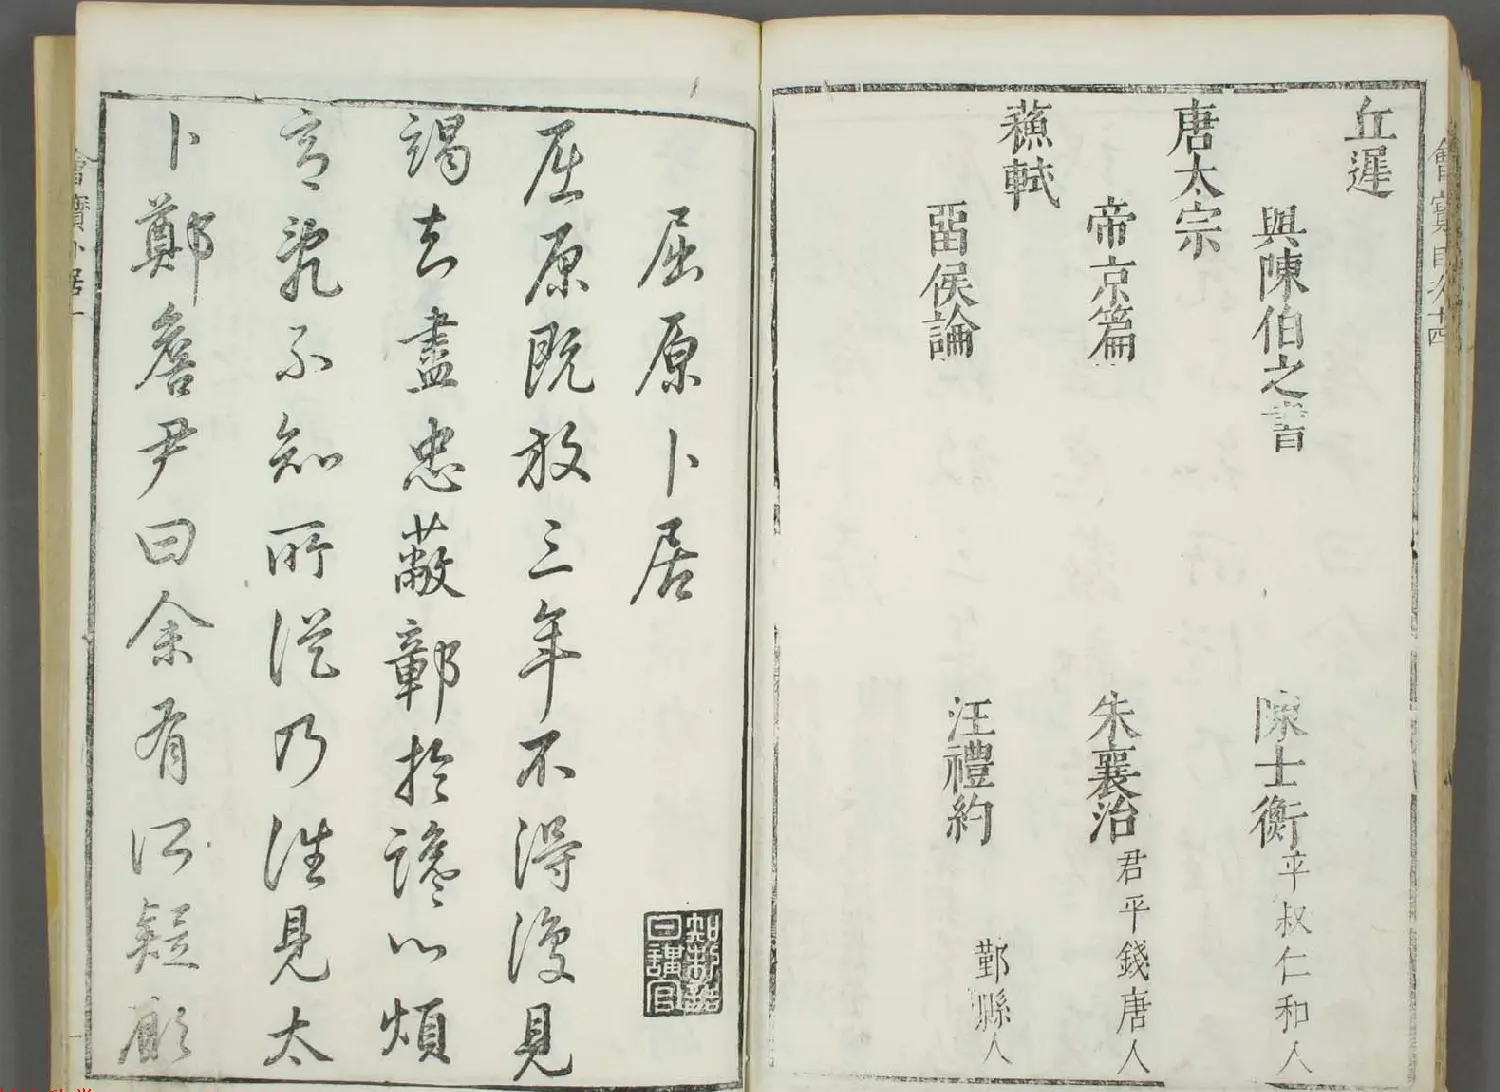 丘遲
與陳伯之書
陳士衡
平叔仁和人
唐太宗
帝京篇
朱襄治
君平錢唐人
蘓軾
畱侯論
汪禮約
鄞縣人
屈原卜居
屈原既放三年不得復見
竭知盡忠蔽鄣於讒心煩
意亂不知所從乃往見太
卜鄭詹尹曰余有所疑願
日講官